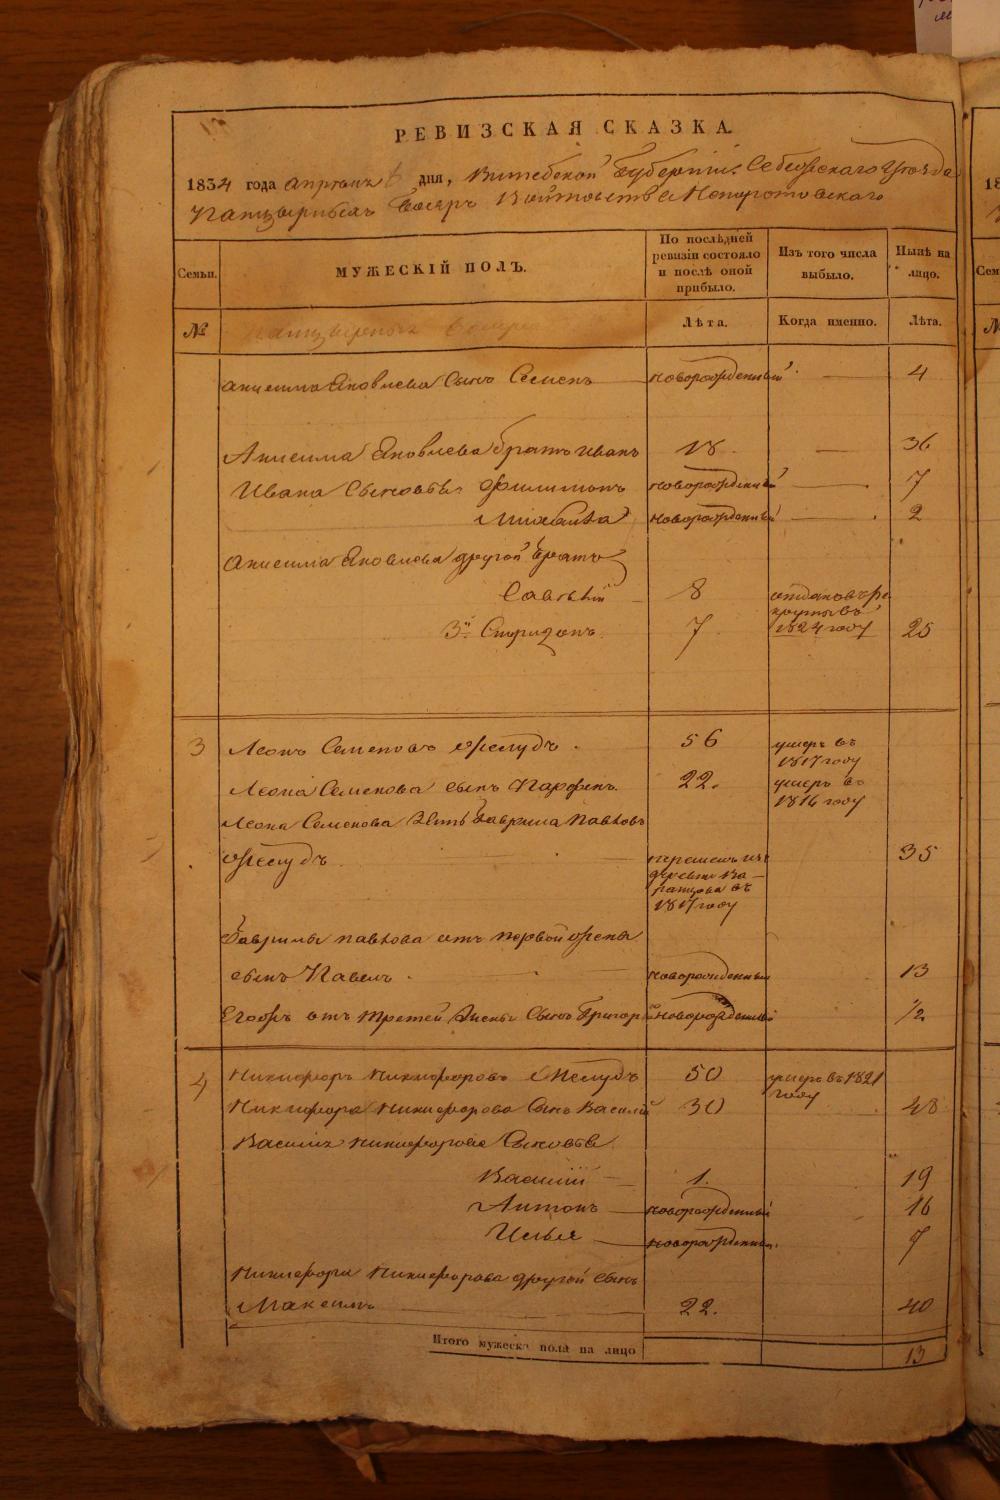 РЕВИЗСКАЯ СКАЗКА.
1834 года апреля дня, Витебской Губернии Себежскаго Уезда
Панцырныхъ Бояръ Войтовства Непоротовскаго
Семьи.
МУЖЕСКІЙ ПОЛЪ.
По послѣдней ревизіи состояло и послѣ оной прибыло.
Изъ того числа выбыло.
Нынѣ на лицо.
№
Панцырныхъ Бояръ
Лѣта.
Когда именно.
Лѣта.
Анисима Яковлева Сынъ Семенъ новорожденный 4
Анисима Яковлева братъ Иванъ 18 36
Ивана Сыновья Филимонъ новорожденный 7
Михайла новорожденный 2
Анисима Яковлева другой братъ
Савелій 8 отданъ въ рекруты въ 1824 году
3й Спиридонъ 7 25
3 Леонъ Семеновъ 56 умеръ въ 1817 году
Леона Семенова сынъ Парфенъ 22. умеръ въ 1816 году
Леона Семенова Зять Гаврила Павловъ
перешелъ изъ деревни въ 1817 году 35
Гаврилы Павлова отъ первой жены
сынъ Павелъ новорожденный 13
Егожъ отъ третей Жены Сынъ Григорій новорожденный 1/2
4 Никифоръ Никифоровъ 50 умеръ въ 1821 году
Никифора Никифорова Сынъ Василій 30 48
Василія Никифорова Сыновья
Василій 1. 19
Антонъ новорожденный 16
Илья новорожденный 7
Никифора Никифорова другой сынъ
Максимъ 22. 40
Итого мужеска пола на лицо 13